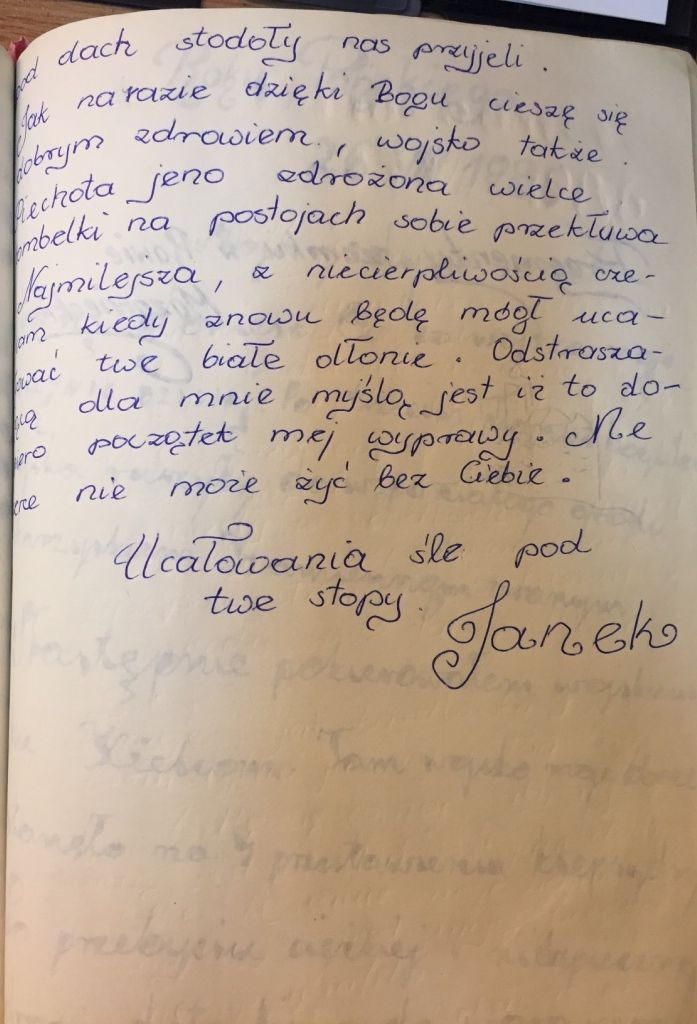 pod dach stodoły nas przyjeli.
Jak narazie dzięki Bogu cieszę się
dobrym zdrowiem, wojsko także.
Piechota jeno zdrożona wielce
ombelki na postojach sobie przekłuwa
Najmilejsza, z niecierpliwością cze-
am kiedy znowu będę mógł uca-
ować twe białe dłonie. Odstrasza-
jącą dla mnie myślą jest iż to do-
iero początek mej wyprawy. Me
erce nie może żyć bez Ciebie.
Ucałowania śle pod
twe stopy.
Janek